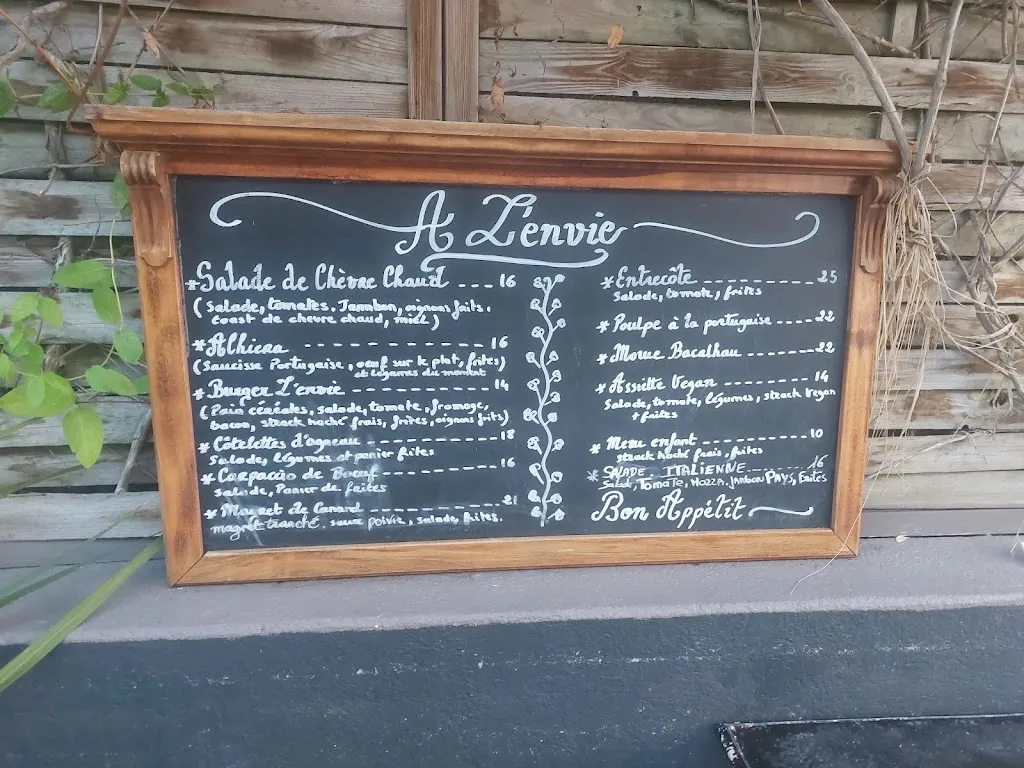 A L'envie
*Salade de Chèvre Chaud .... 16
(Salade, tomates, Jambon, oignons frits,
toast de chevre chaud, miel)
*Alhiera ---------- 16
(Saucisse Portugaise, oeuf sur le plat, frites)
et légumes du moment
*Burger L'envie ---------- 14
(Pain céréales, salade, tomate, fromage,
bacon, steack haché frais, frites, oignons frits)
*Côtelettes d'agneau ---------- 18
Salade, légumes et panier frites
*Carpaccio de Boeuf ---------- 16
salade, Panier de frites
*Magret de Canard ---------- 21
magret tranché, sauce poivre, salade, frites.
*Entrecôte ---------- 25
Salade, tomate, frites
*Poulpe à la portugaise ----- 22
*Morue Bacalhau ------- 22
*Assiette Vegan -------- 14
Salade, tomate, légumes, steack Vegan
+ frites
*Menu enfant ---------- 10
steack haché frais, frites
*SALADE ITALIENNE ---------- 16
Salade, Tomate, Mozza, Jambon PAYS, Frites
Bon Appétit